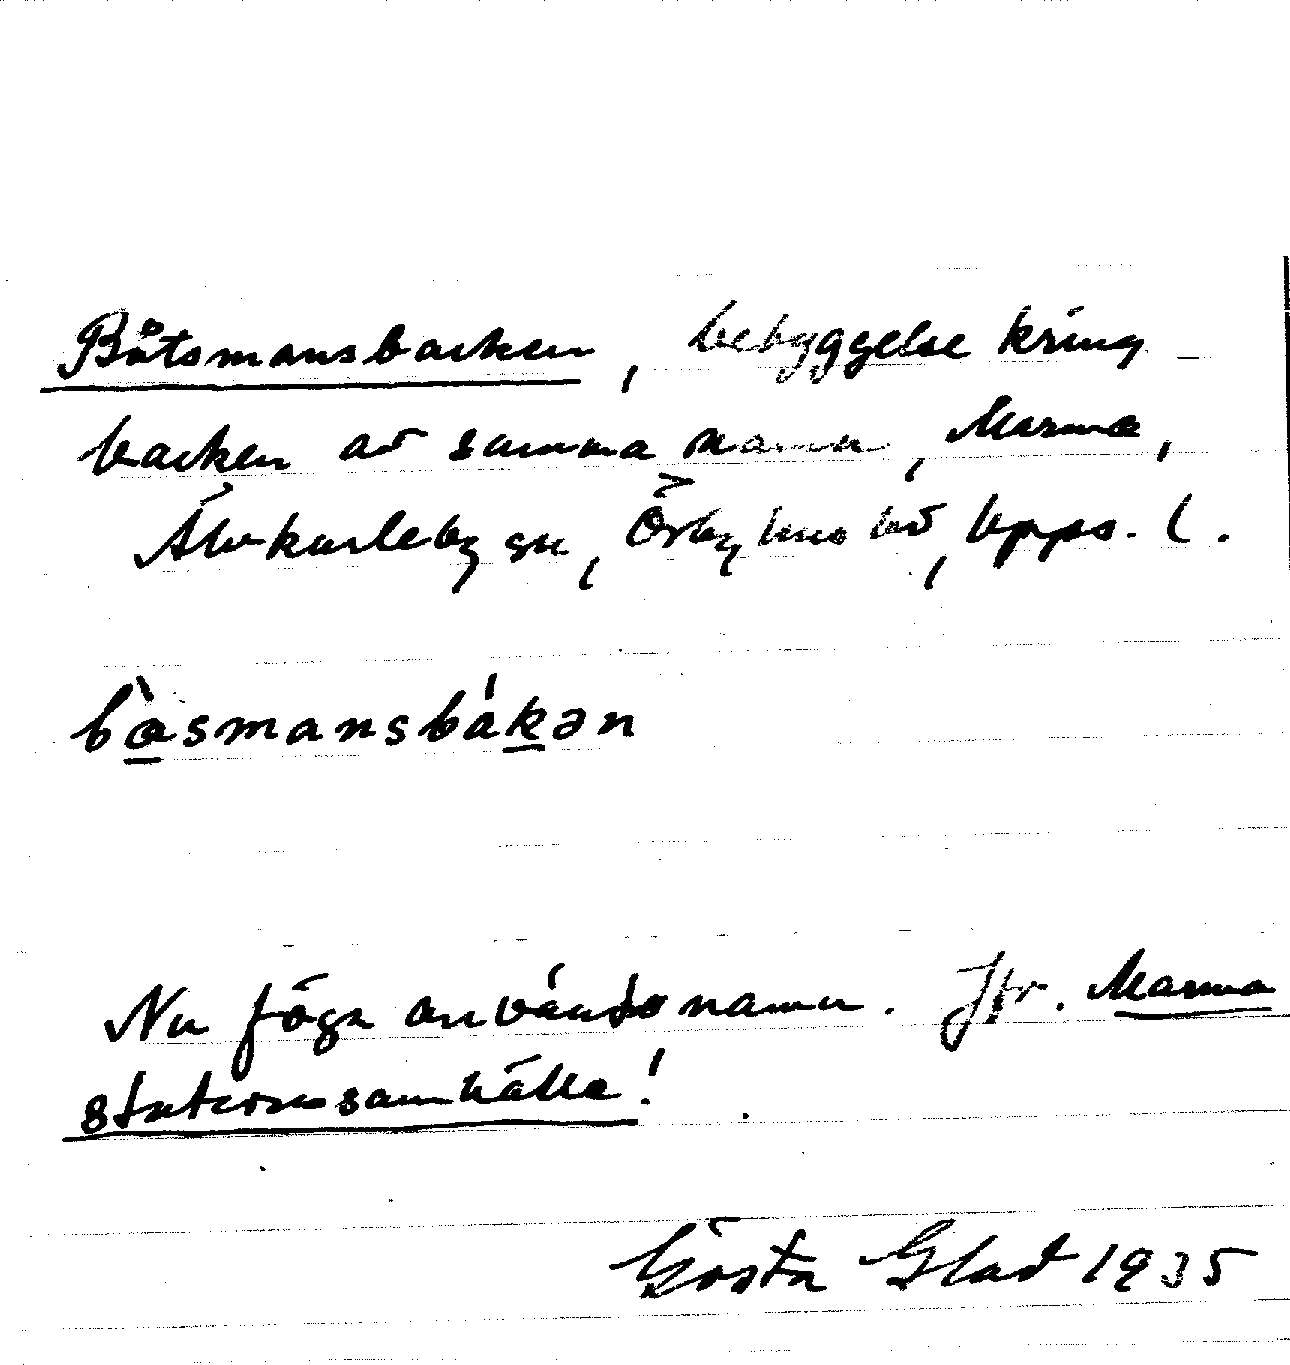 Båtsmansbacken, bebyggelse kring
backen av samma namn, Marma,
Älvkarleby sn, Örbyhus hd, Upps. l.
bå̀smansbákən
Nu föga använda namn. Jfr. Marma
stationssamhälle!
Gösta Glad 1935